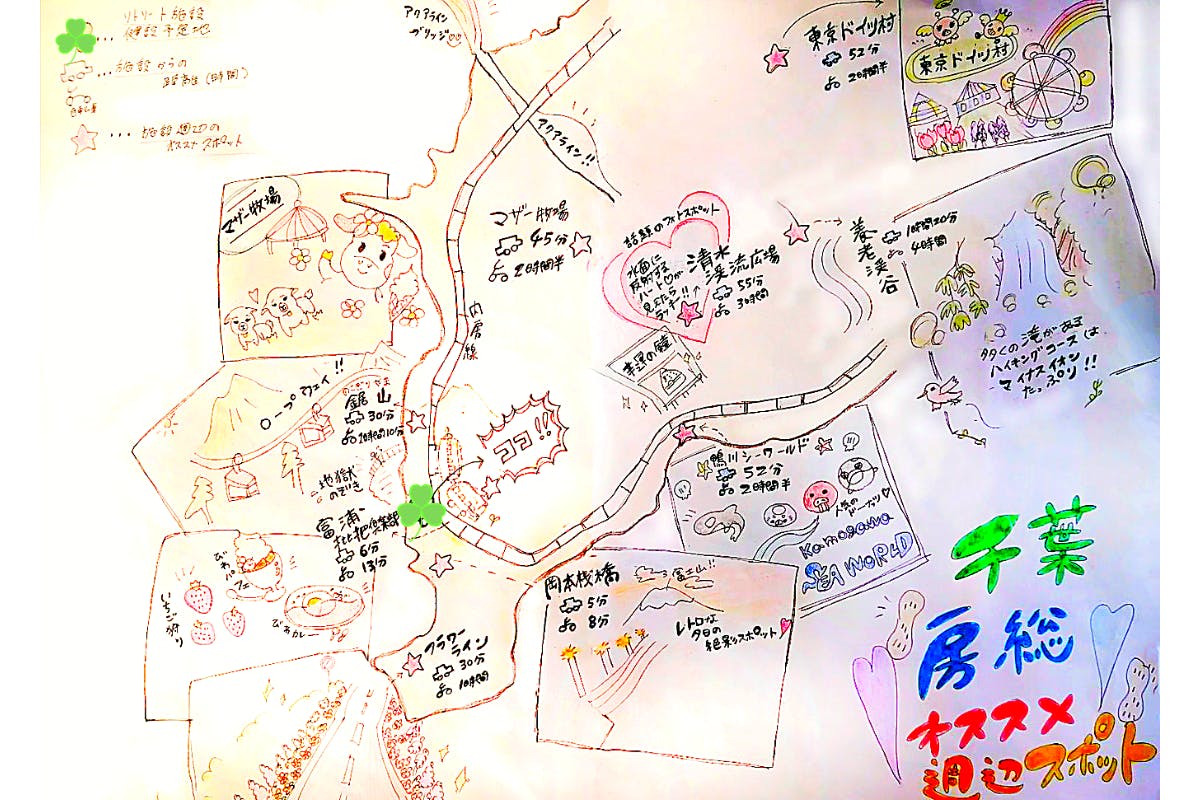 リトリート施設
建設予定地
...施設からの
距離(時間)
自転車
...施設周辺の
オススメスポット
アクアライン
ブリッジ
アクアライン!!
東京ドイツ村
52分
2時間半
東京ドイツ村
マザー牧場
マザー牧場
45分
2時間半
内房線
話題のフォトスポット
水面に
反射する
ハート♡が
見えたら
ラッキー!!
清水
渓流広場
55分
3時間
養老渓谷
1時間20分
4時間
多くの滝がある
ハイキングコースは
マイナスイオン
たっぷり!!
幸運の鐘
ロープウェイ!!
のこぎりやま
鋸山
30分
1時間10分
地獄
のぞき
ココ!!
鴨川シーワールド
52分
2時間半
人気の
ドーナツ♡
Kamogawa
SEA WORLD
富浦・
枇杷倶楽部
6分
13分
びわパフェ
いちご狩り
びわカレー
岡本桟橋
5分
8分
富士山!!
レトロな
夕日の
絶景スポット
フラワー
ライン
30分
1時間
千葉
房総
オススメ
週辺スポット